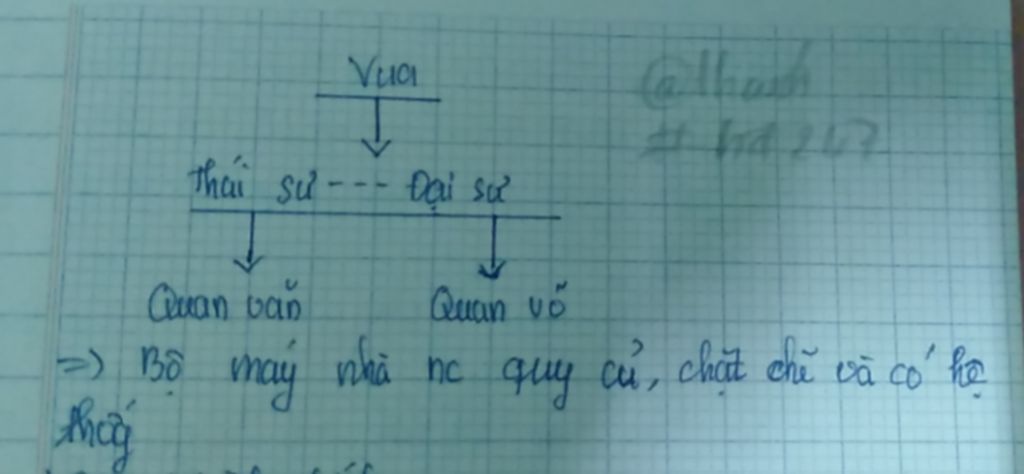 Vua
Thái sư --- Đại sư
Quan văn Quan võ
=> Bộ máy nhà nc quy củ, chặt chẽ và có hệ
thốg